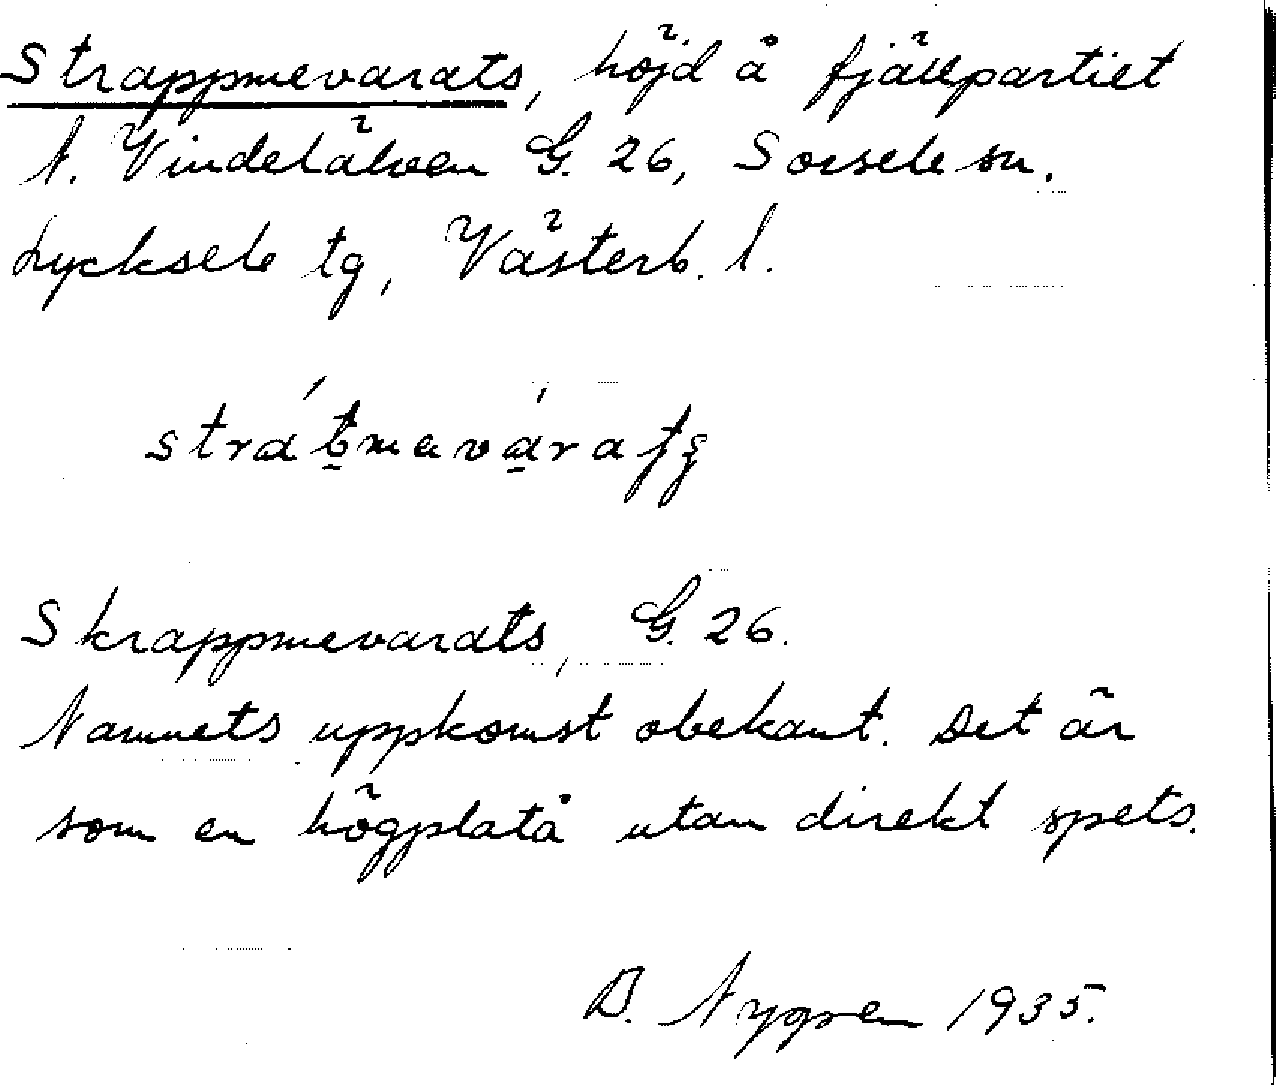 Strappmevarats, höjd å fjällpartiet
N. Vindelälven G. 26, Sorsele sn.
Lycksele tg, Västerb. l.
Skrappmevarats, G. 26.
Namnets uppkomst obekant. Det är
som en högplatå utan direkt spets.
B. Nygren 1935.